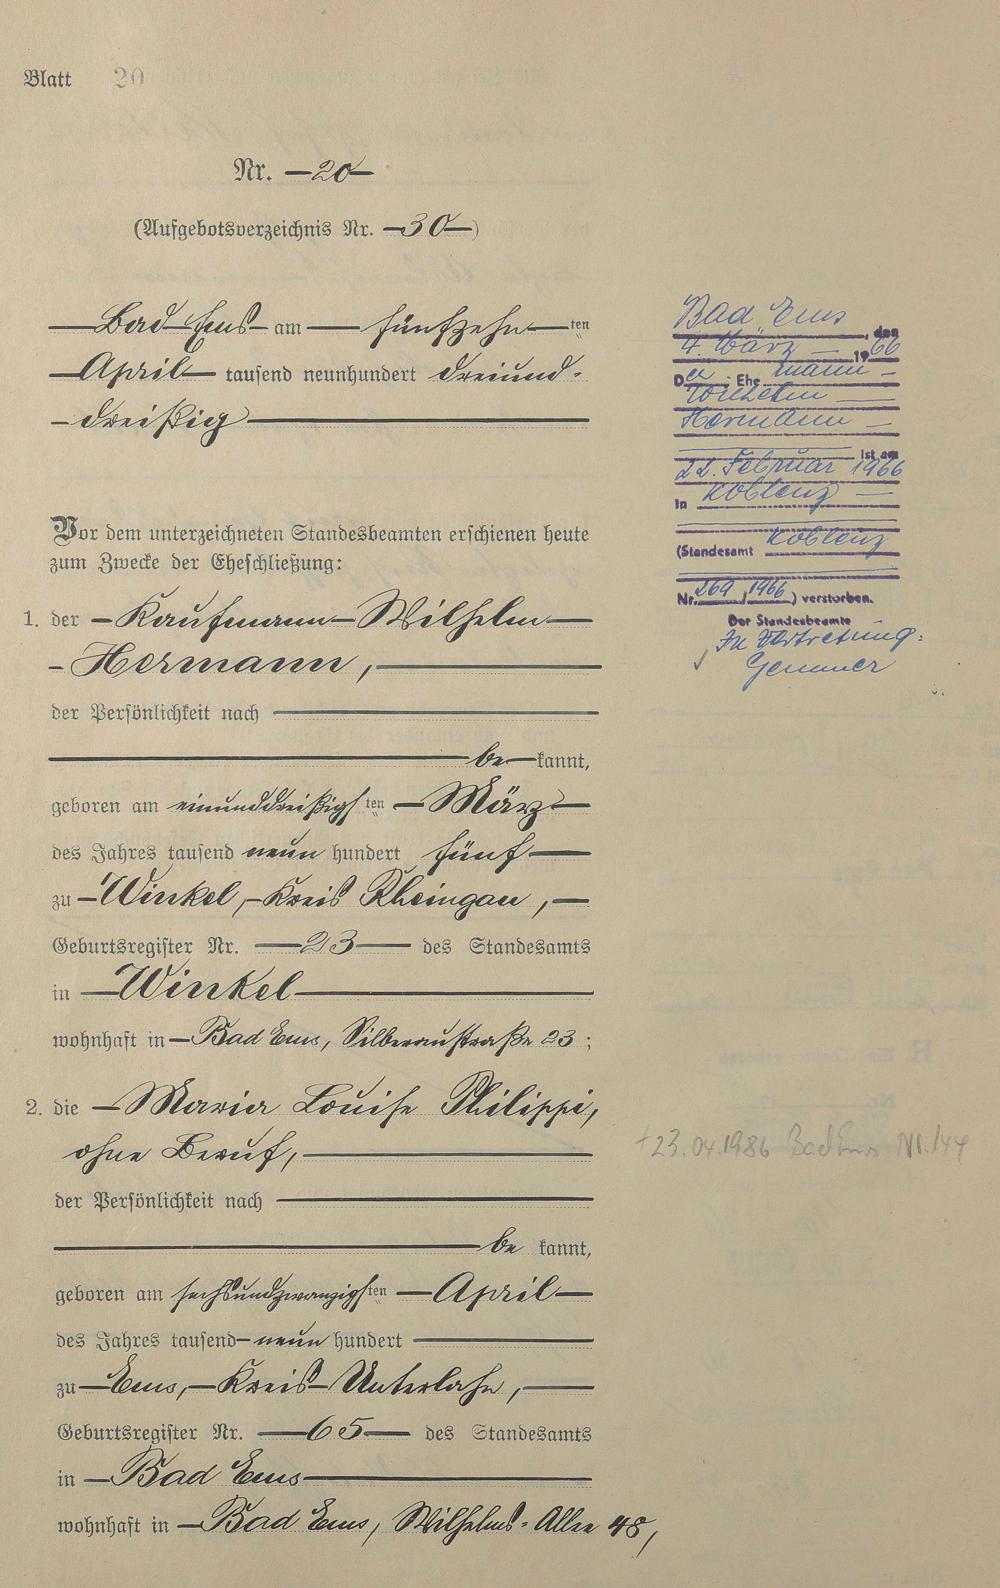 Blatt 20
Nr. 20
(Aufgebotsverzeichnis Nr. 30)
Bad Ems am fünfzehnten
April tausend neunhundert dreiund-
dreißig
Vor dem unterzeichneten Standesbeamten erschienen heute
zum Zwecke der Eheschließung:
1. der Kaufmann Wilhelm
Hermann,
der Persönlichkeit nach
bekannt,
geboren am einunddreißigsten März
des Jahres tausend neun hundert fünf
zu Winkel, Kreis Rheingau,
Geburtsregister Nr. 23 des Standesamts
in Winkel
wohnhaft in Bad Ems, Silberaustraße 23;
2. die Maria Louise Philippi,
ohne Beruf,
der Persönlichkeit nach
bekannt,
geboren am sechsundzwanzigsten April
des Jahres tausend neun hundert
zu Ems, Kreis Unterlahn,
Geburtsregister Nr. 65 des Standesamts
in Bad Ems
wohnhaft in Bad Ems, Wilhelms-Allee 48,
Bad Ems, den
4. März 1966
Der Ehemann
Wilhelm
Hermann
ist am
22. Februar 1966
in Koblenz
(Standesamt Koblenz
Nr. 269/1966) verstorben.
Der Standesbeamte
In Vertretung:
+23.04.1986 Bad Ems Nr. 144